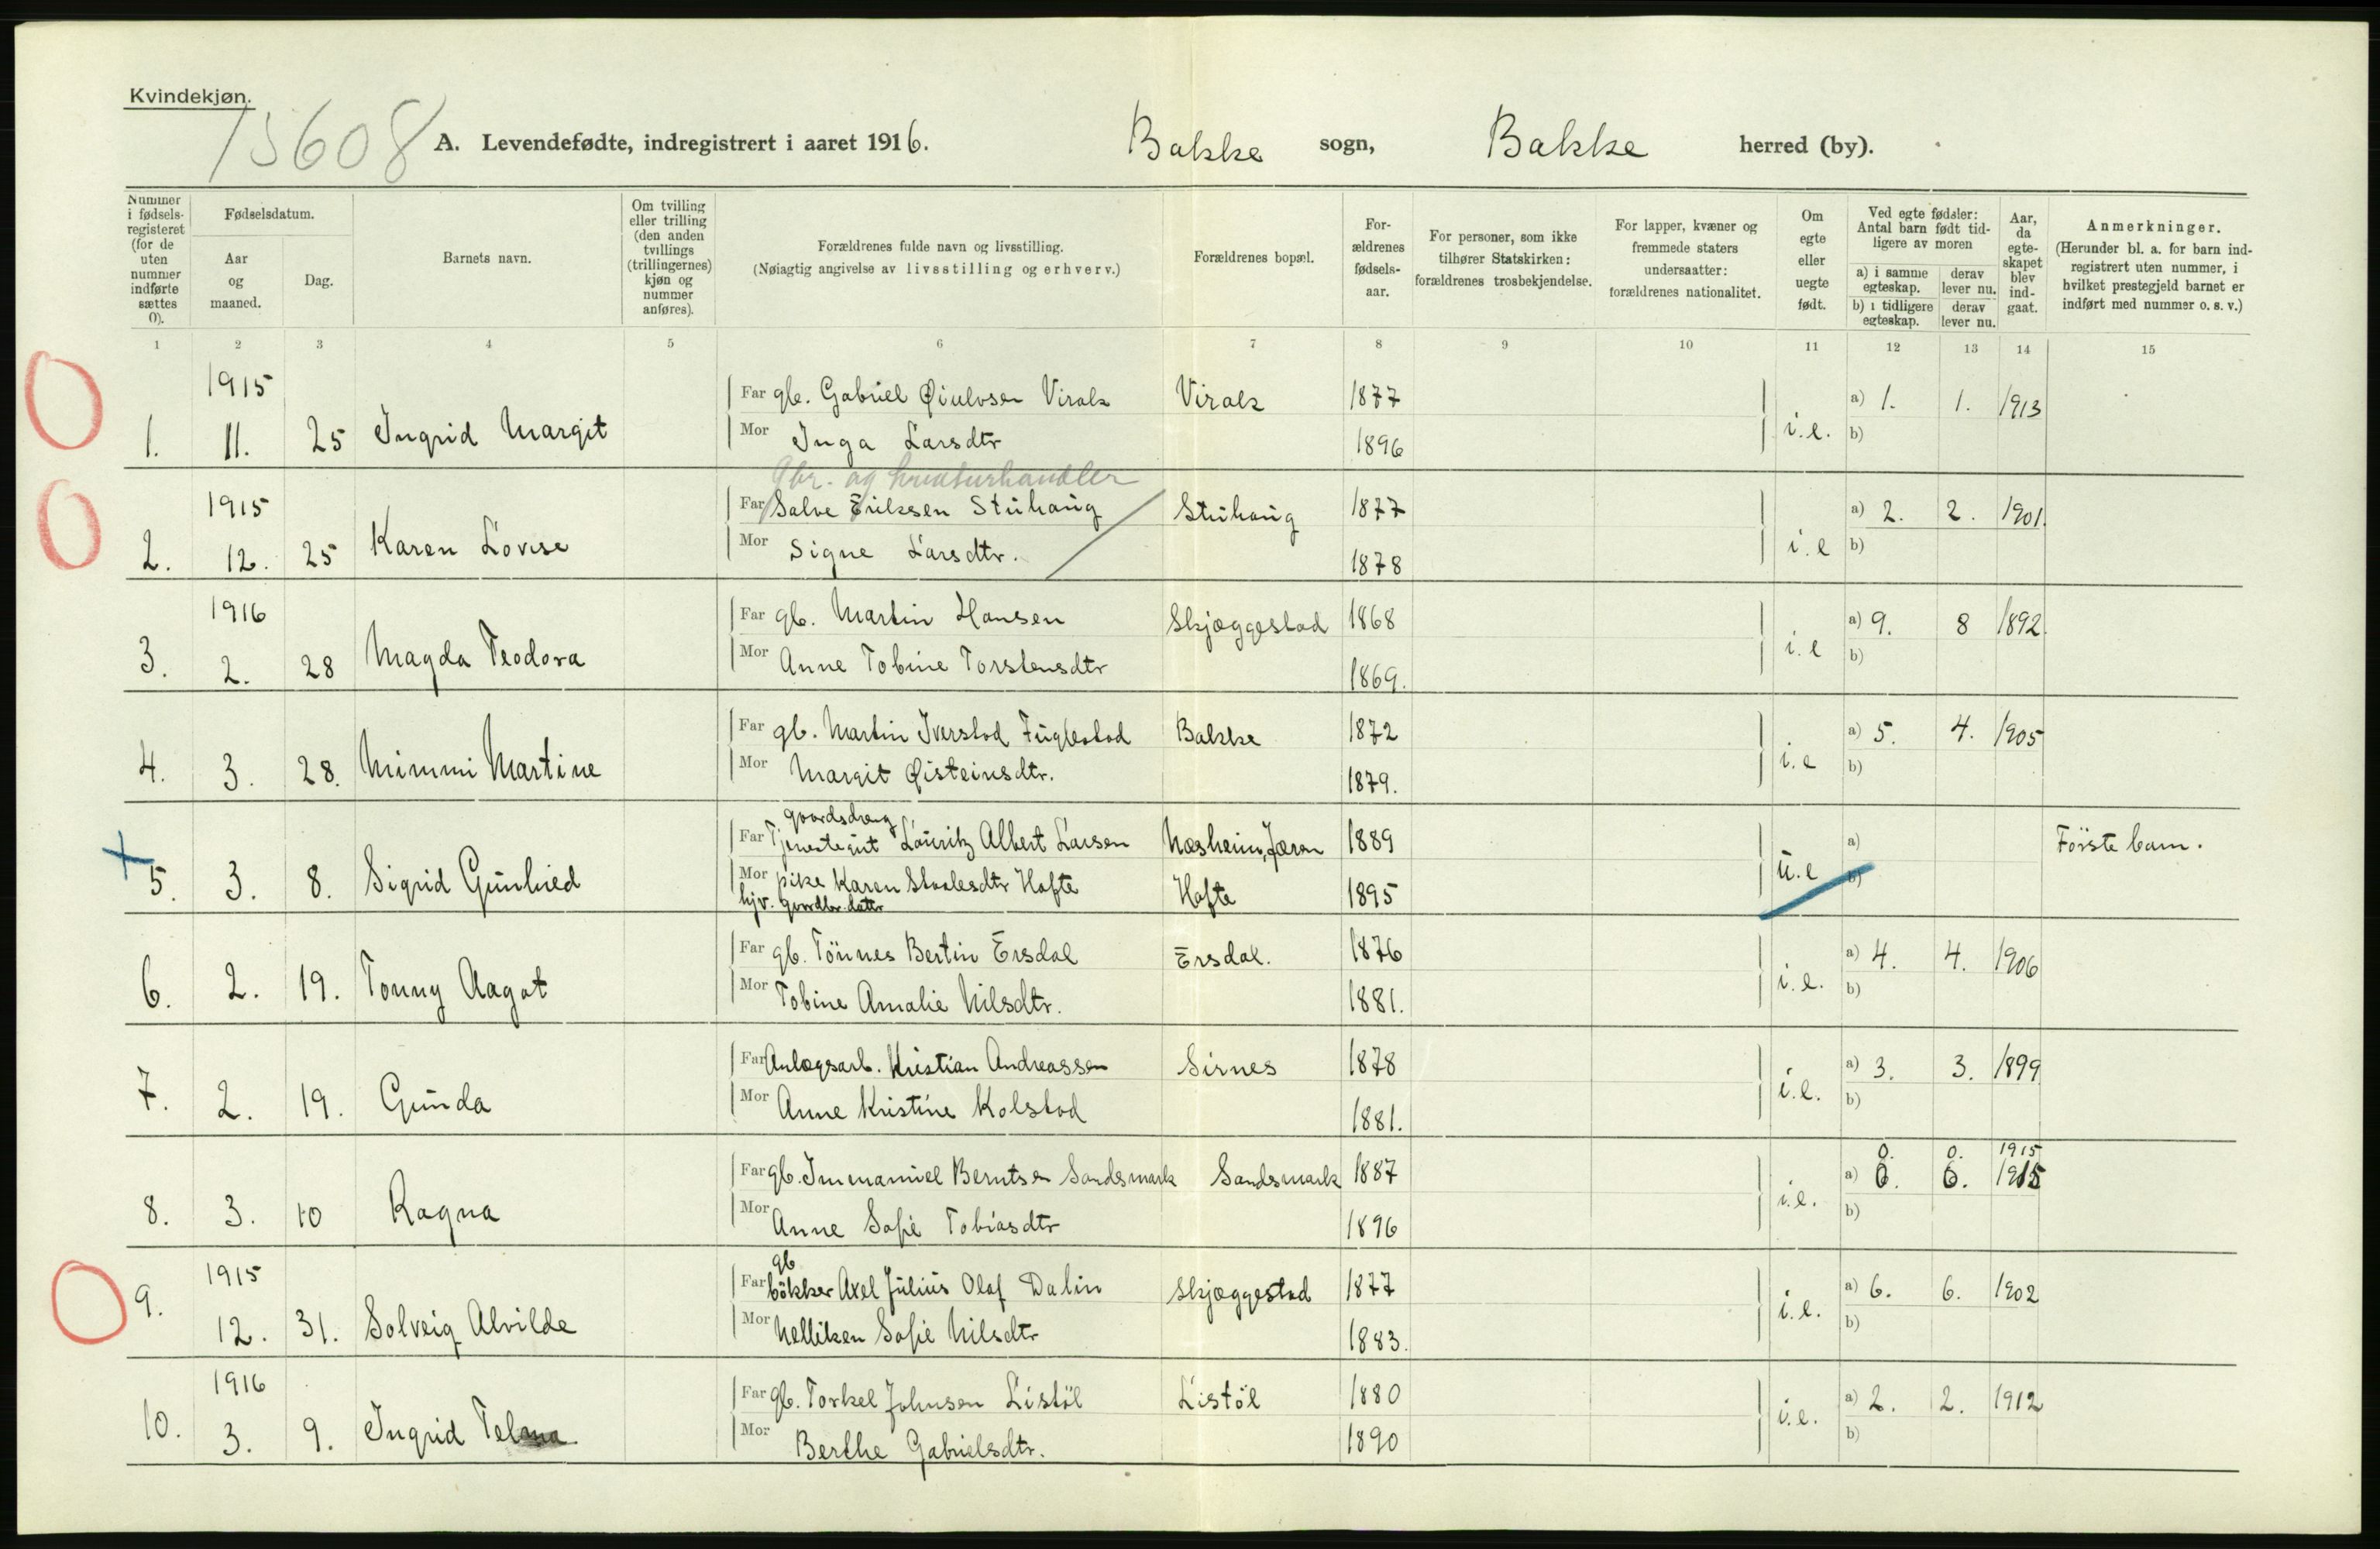 Kvindekjøn.
15608
A. Levendefødte, indregistrert i aaret 1916. Bakke sogn, Bakke herred (by).
Nummer i fødsels-registeret (for de uten nummer indførte sættes 0).
Fødselsdatum.
Aar og maaned.
Dag.
Barnets navn.
Om tvilling eller trilling (den anden tvillings (trillingernes) kjøn og nummer anføres).
Forældrenes fulde navn og livsstilling.
(Nøiagtig angivelse av livsstilling og erhverv.)
Forældrenes bopæl.
For-ældrenes fødsels-aar.
For personer, som ikke tilhører Statskirken: forældrenes trosbekjendelse.
For lapper, kvæner og fremmede staters undersaatter: forældrenes nationalitet.
Om egte eller uegte født.
Ved egte fødsler: Antal barn født tid-ligere av moren
a) i samme egteskap.
derav lever nu.
b) i tidligere egteskap.
derav lever nu.
Aar, da egte-skapet blev ind-gaat.
Anmerkninger.
(Herunder bl. a. for barn ind-registrert uten nummer, i hvilket prestegjeld barnet er indført med nummer o. s. v.)
1 2 3 4 5 6 7 8 9 10 11 12 13 14 15
1915
Far gb. Gabriel Øiulvsen Virak Virak 1877 a) 1. 1. 1913
1. 11. 25 Ingrid Margit Mor Inga Larsdtr 1896 i.e. b)
gbr. og kreaturhandler
1915
Far Salve Eriksen Stuhaug Stuhaug 1877 a) 2. 2. 1901.
2. 12. 25 Karen Lovise Mor Signe Larsdtr. 1878 i.e b)
1916
Far gb. Martin Hansen Skjæggestad 1868 a) 9. 8 1892.
3. 2. 28 Magda Teodora Mor Anne Tobine Torstensdtr 1869. i.e b)
Far gb. Martin Iverstad Fuglestad Bakke 1872 a) 5. 4. 1905
4. 3. 28. Mimmi Martine Mor Margit Øisteinsdtr. 1879. i.e b)
gaardsdreng
Far Tjenestegut Lauritz Albert Larsen Næsheim, Jæren 1889 a) Förste barn.
5. 3. 8. Sigrid Gunhied Mor pike Karen Staalesdtr Hafte Hafte 1895 u.e b)
hjv. gaardbr. datter
Far gb. Tönnes Bertin Ersdal Ersdal. 1876 a) 4. 4. 1906
6. 2. 19. Tonny Aagot Mor Tobine Amalie Nilsdtr. 1881. i.e. b)
Far Anlægsarb. Kristian Andreassen Sirnes 1878 a) 3. 3. 1899
7. 2. 19. Gunda Mor Anne Kristine Kolstad 1881. i.e. b)
0. 0. 1915
Far gb. Immanuel Berntsen Sandsmark Sandsmark 1887 a) 0. 0. 1915
8. 3. 10 Ragna Mor Anne Sofie Tobiasdtr 1896 i.e. b)
gb
1915
Far bökker Axel Julius Olaf Dalin Skjæggestad 1877 a) 6. 6. 1902
9. 12. 31. Solveig Alvilde Mor Nelliken Sofie Nilsdtr 1883. i.e. b)
1916
Far gb. Torkel Johnsen Listöl Listöl 1880 a) 2. 2. 1912
10. 3. 9. Ingrid Telma Mor Berthe Gabrielsdtr. 1890 i.e. b)